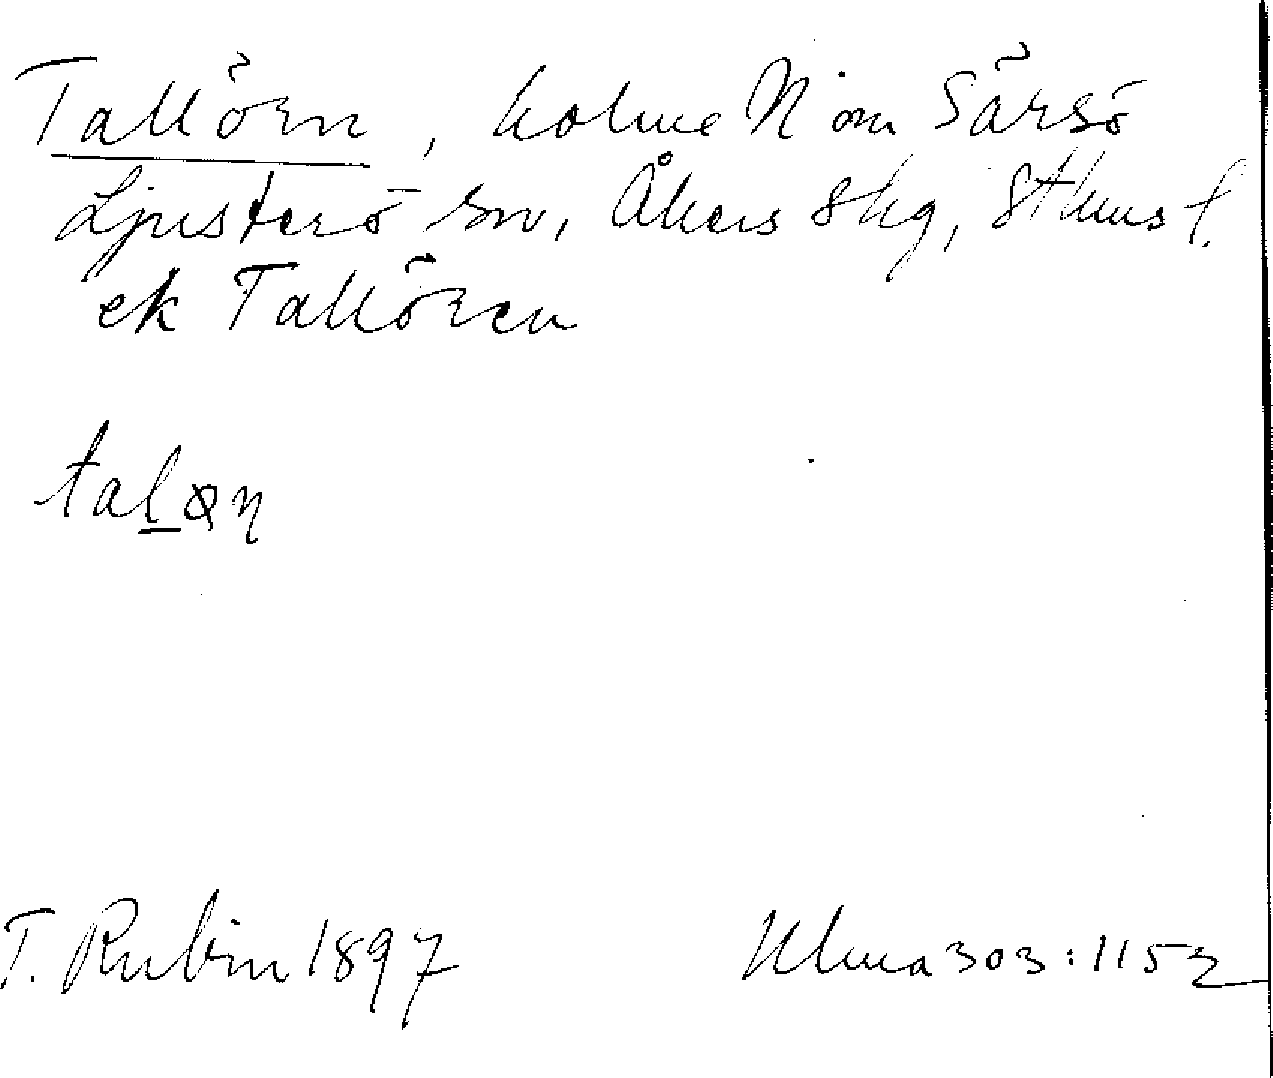 Tallörn, holme N om Särsö
Ljusterö sn, Åkers skg, Sthms l.
ek Tallören
T. Rubin 1897
Ulma 303:1152